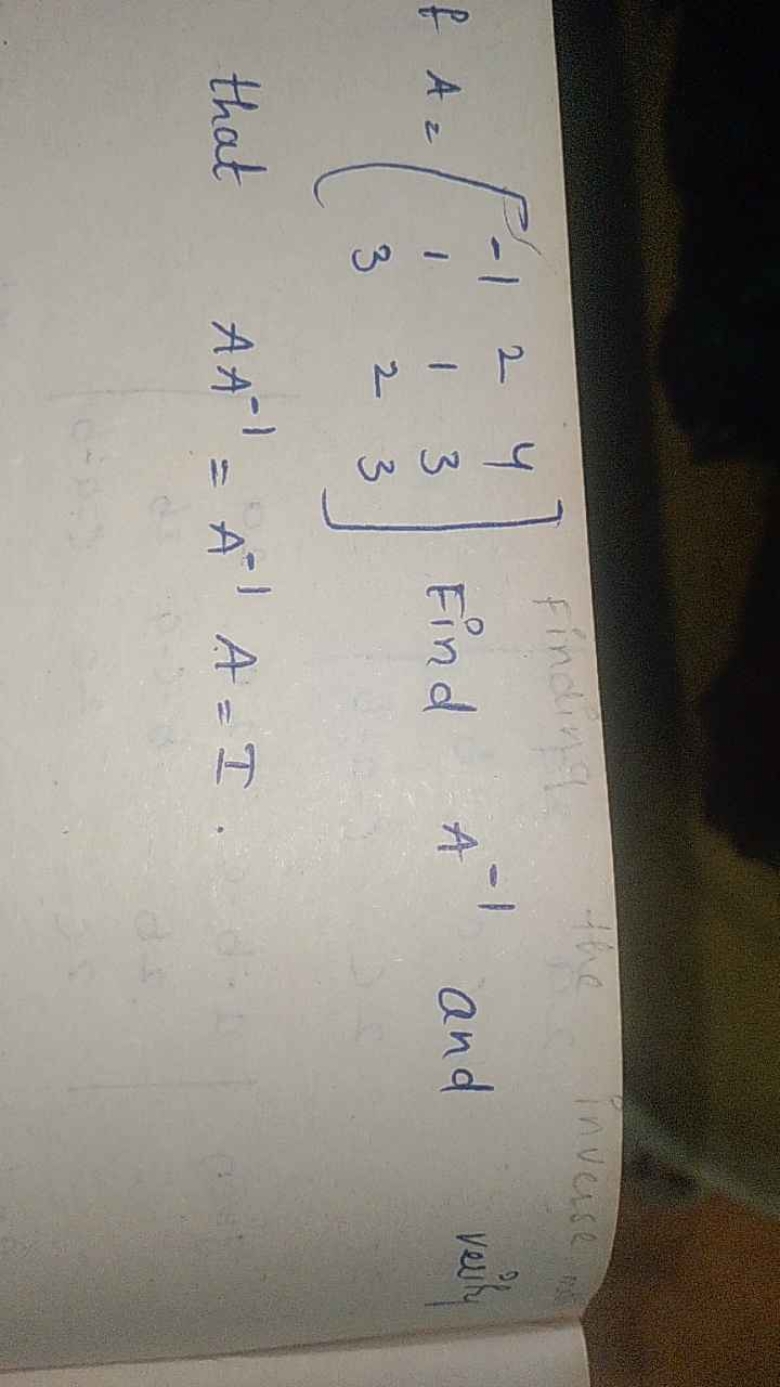 f A = [ -1 2 4
1 1 3
3 2 3 ] Find A⁻¹ and verify
that AA⁻¹ = A⁻¹ A = I .
Finding the inverse